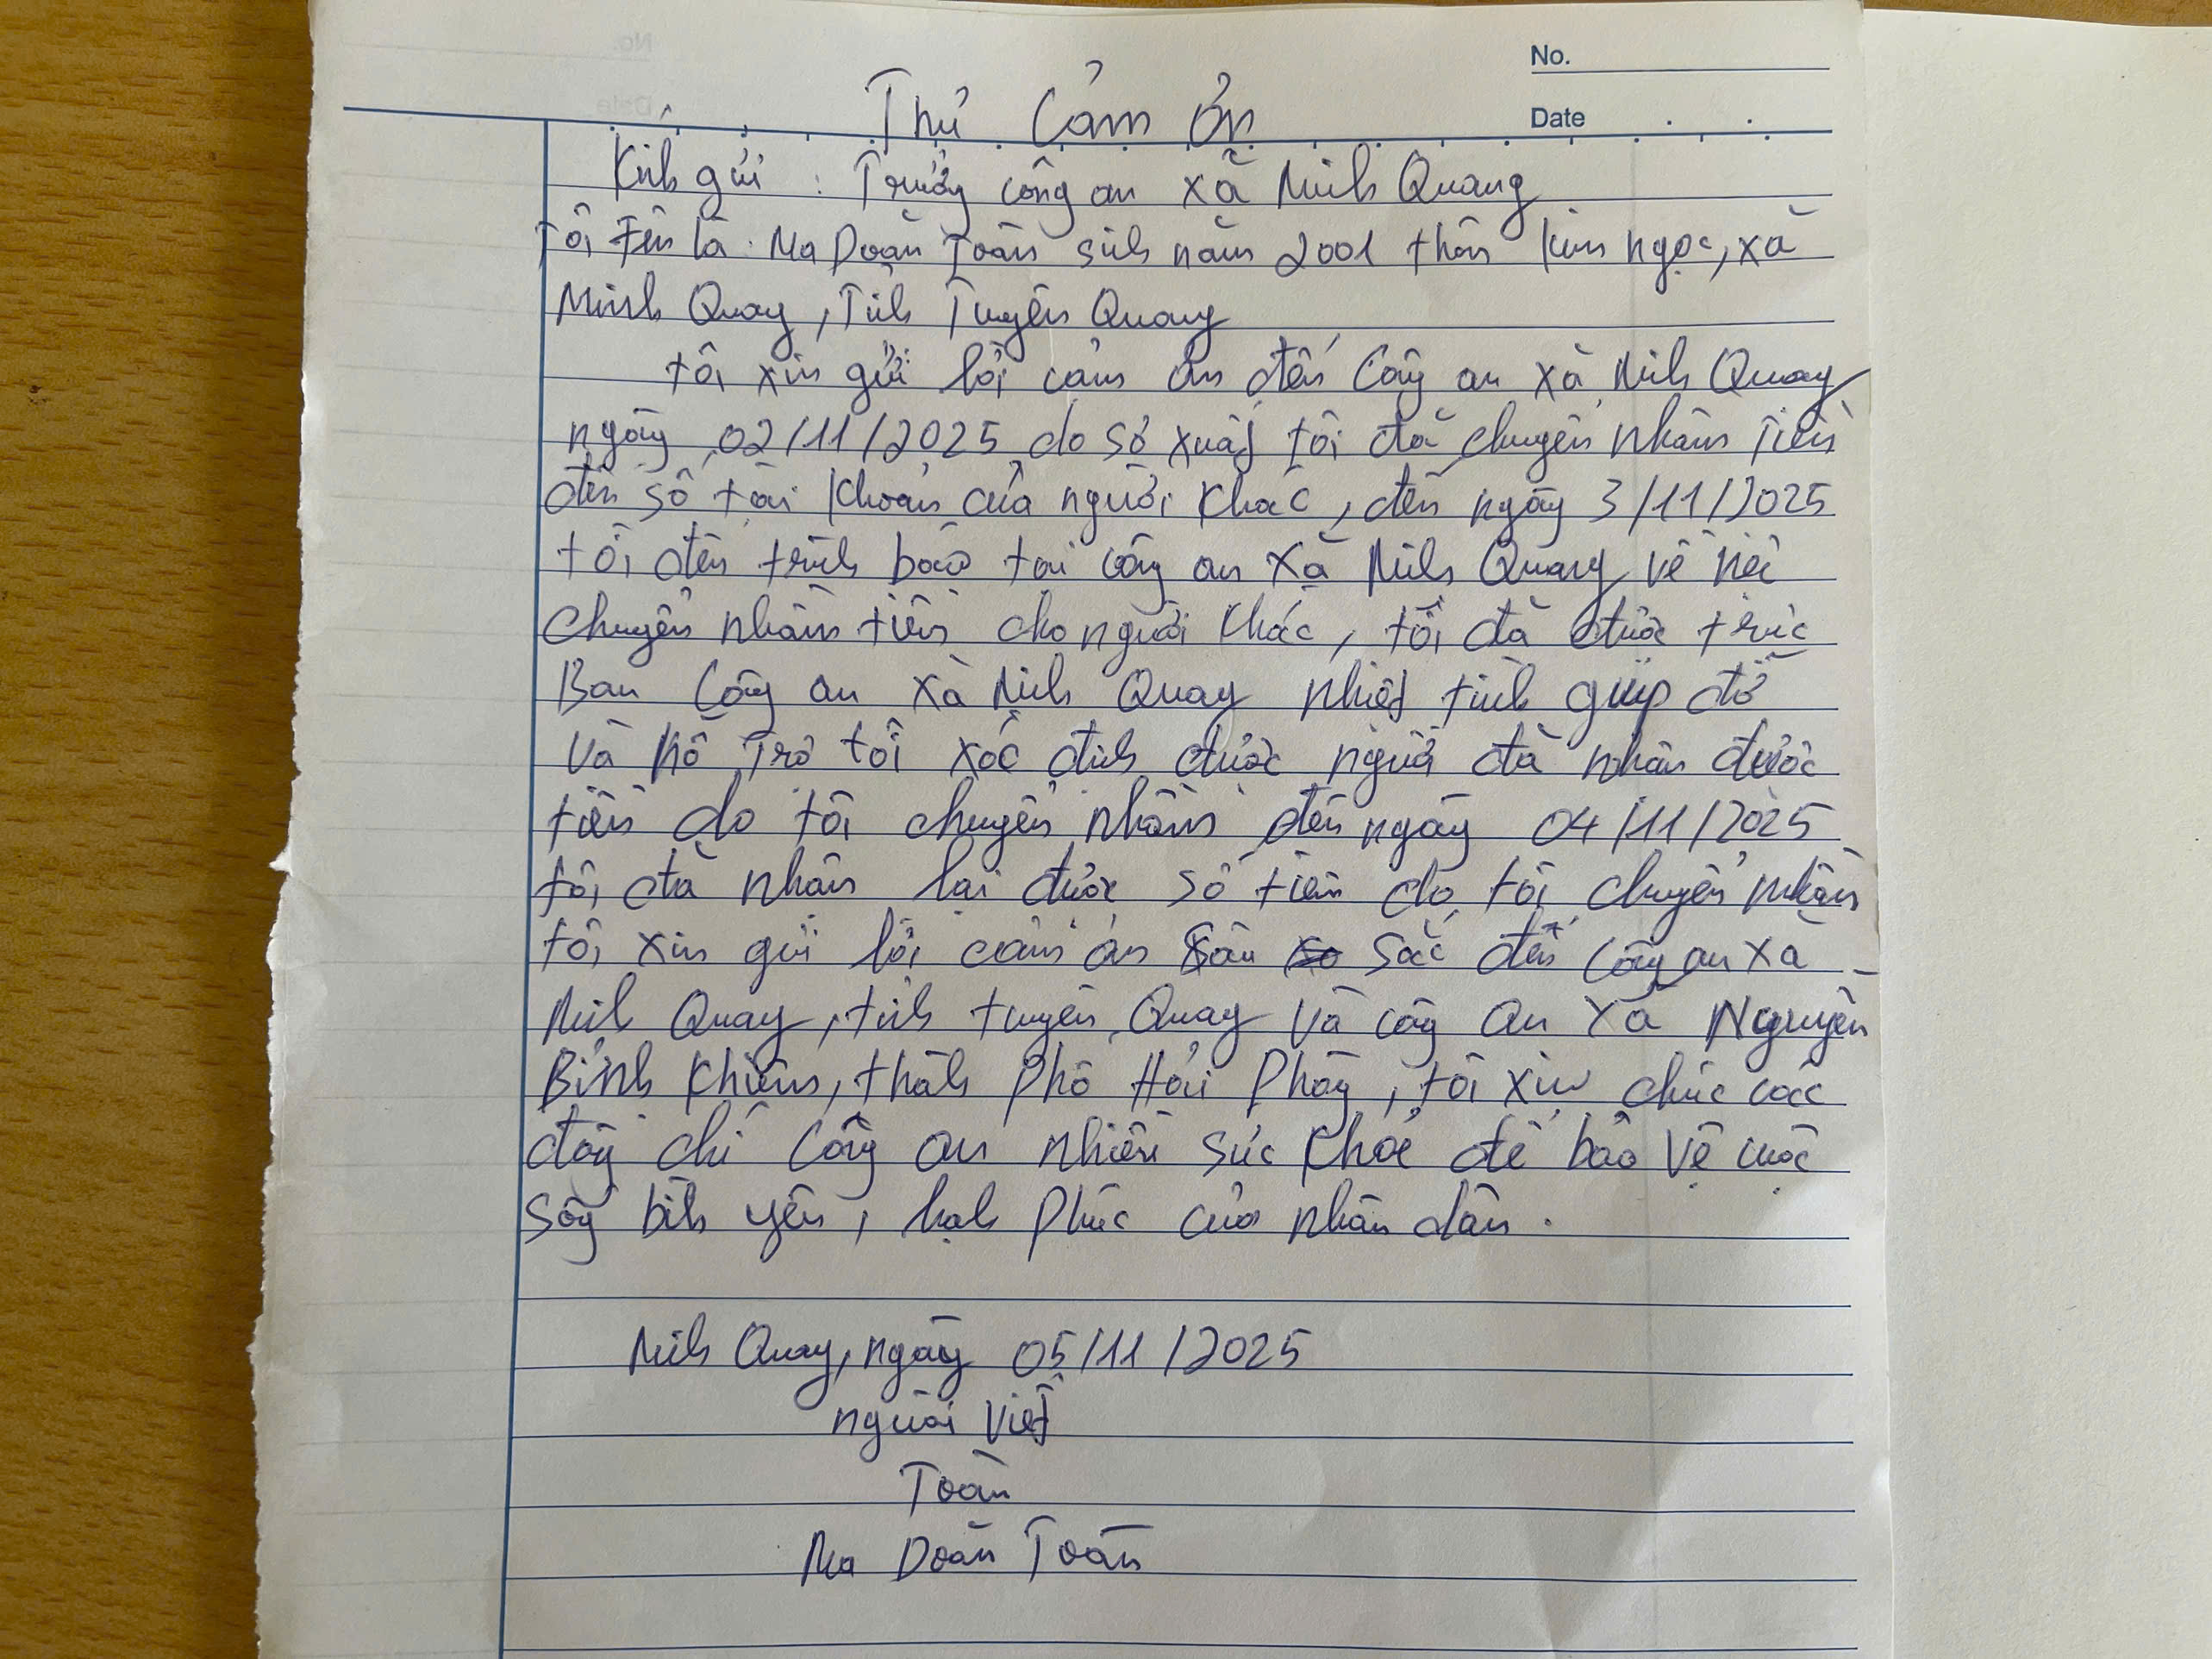 No.
Date
Thư Cảm Ơn
Kính gửi : Trưởng công an xã Minh Quang
Tôi tên là : Ma Doãn Toàn sinh năm 2001 thôn Kim ngọc, xã
Minh Quang, Tỉnh Tuyên Quang
tôi xin gửi lời cảm ơn đến Công an xã Minh Quang
ngày 02/11/2025 do sơ xuất tôi đã chuyển nhầm tiền
đến số tài khoản của người khác, đến ngày 3/11/2025
tôi đến trình báo tại công an xã Minh Quang về việc
chuyển nhầm tiền cho người khác, tôi đã được trực
Ban Công an xã Minh Quang nhiệt tình giúp đỡ
và hỗ trợ tôi xác định được người đã nhận được
tiền do tôi chuyển nhầm đến ngày 04/11/2025
tôi đã nhận lại được số tiền do tôi chuyển nhầm
tôi xin gửi lời cảm ơn sâu sắc đến Công an xã
Minh Quang, tỉnh tuyên Quang và công an xã Nguyễn
Bỉnh Khiêm, thành phố Hải Phòng, tôi xin chúc các
đồng chí Công an nhiều sức khỏe để bảo vệ cuộc
sống bình yên, hạnh phúc của nhân dân.
Minh Quang, ngày 05/11/2025
người viết
Toàn
Ma Doãn Toàn